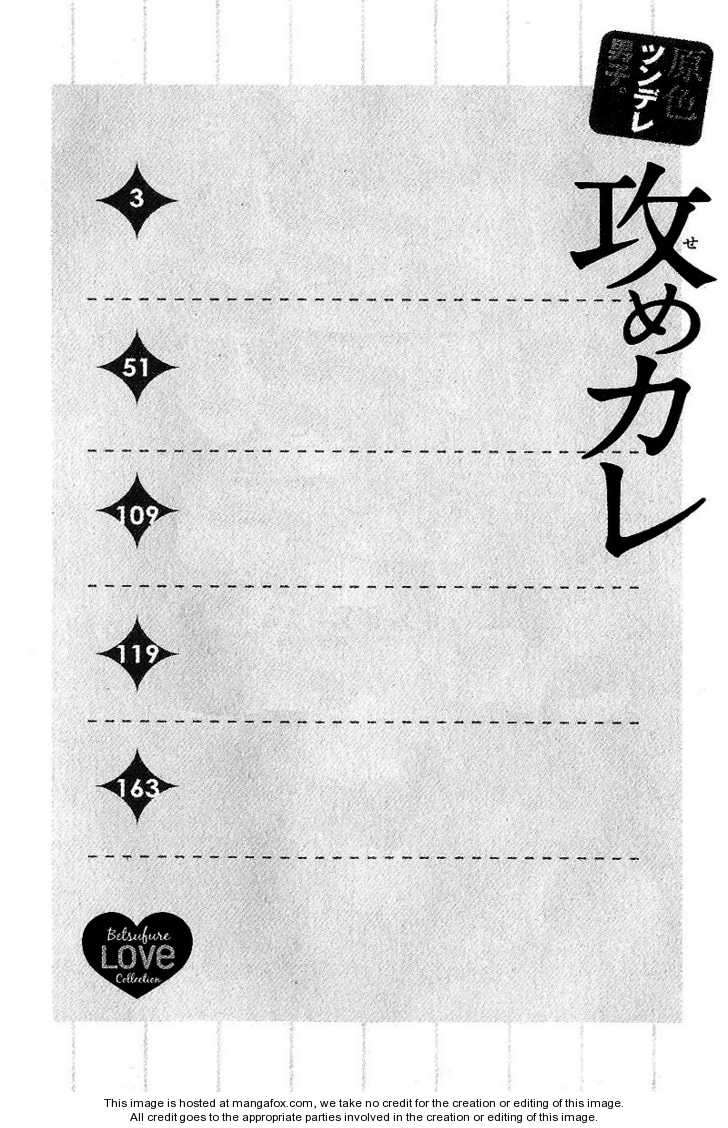 原色
ツンデレ
男子。
攻めカレ
せ
3
51
109
119
163
Betsufure
LOVE
Collection
This image is hosted at mangafox.com, we take no credit for the creation or editing of this image.
All credit goes to the appropriate parties involved in the creation or editing of this image.